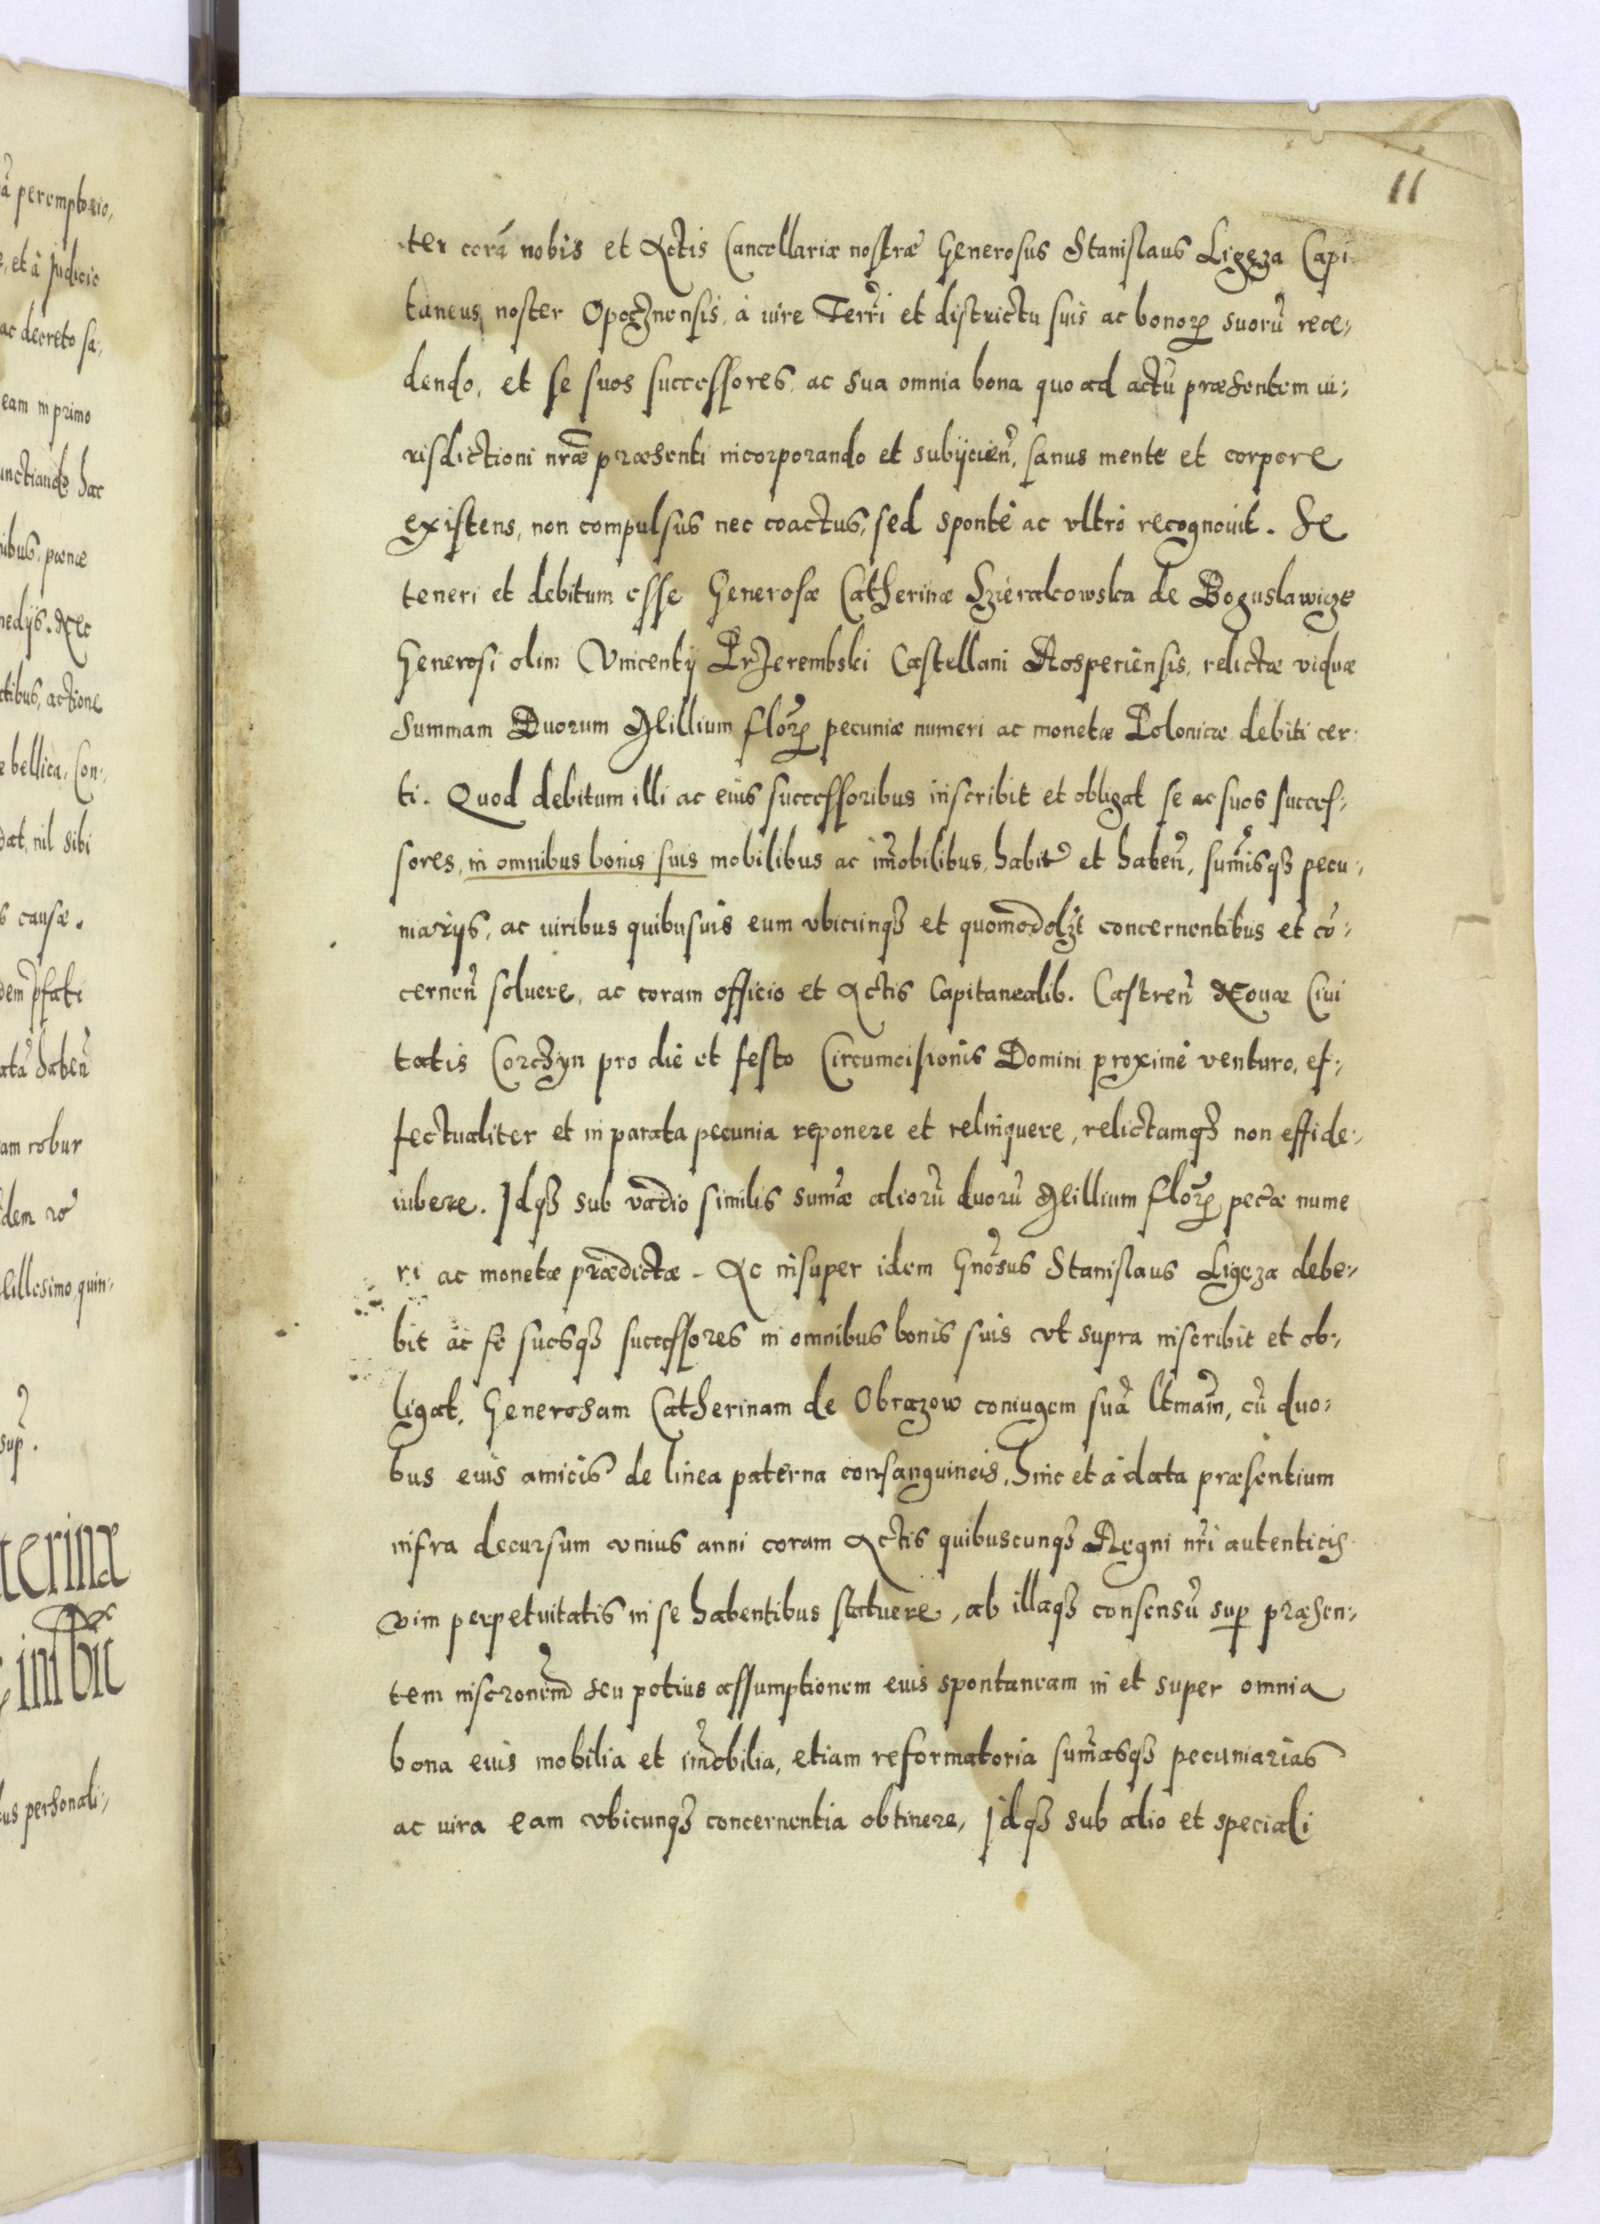 ã peremptorio,
e, et à Judicio
ac decreto sa-
eam in primo
unctiando hac
nibus, pœnæ
medijs. Nec
ctibus, actione
e bellica, Con-
dat, nil sibi
s causæ.
dem pfati
atã habeñ
am robur
idem ro
illesimo quin-
sup.
terinæ
bus personali-
11
ter corã nobis et Actis Cancellariæ nostræ Generosus Stanislaus Ligęza Capi
taneus noster Opocznensis, à iure Terrĩ et districtu suis ac bonoꝝ suorũ rece-
dendo, et se suos successores, ac sua omnia bona quo ad actũ præsentem iu-
risdictioni nr̃æ præsenti incorporando et subijcieñ, sanus mente et corpore
existens, non compulsus nec coactus, sed sponte ac vltro recognouit. Se
teneri et debitum esse Generosæ Catherinæ Szierakowska de Boguslawicze
Generosi olim Vincentij Przerembski Castellani Rosperiensis, relictæ viduæ
Summam Duorum Millium floꝝ pecuniæ numeri ac monetæ Polonicæ debiti cer-
ti. Quod debitum illi ac eius successoribus inscribit et obligat se ac suos succes-
sores, in omnibus bonis suis mobilibus ac im̃obilibus, habit̃ et habeñ, sum̃isqȝ pecu-
niarijs, ac iuribus quibusuis eum vbicunqȝ et quomodolȝt concernentibus et cõ-
cerneñ soluere, ac coram officio et Actis Capitanealib. Castreñ Nouæ Ciui
tatis Corczyn pro die et festo Circumcisionis Domini proxime venturo, ef-
fectualiter et in parata pecunia reponere et relinquere, relictamqȝ non effide-
iubere. Idqȝ sub vadio similis sum̃æ aliorũ duorũ Millium floꝝ pecæ nume
ri ac monetæ prædictæ. Ac insuper idem Gnõsus Stanislaus Ligęza debe-
bit ac se suosqȝ successores in omnibus bonis suis vt supra inscribit et ob-
ligat, Generosam Catherinam de Obrazow coniugem suã ltmãm, cũ duo-
bus eius amicis de linea paterna consanguineis, hinc et à data præsentium
infra decursum vnius anni coram Actis quibuscunqȝ Regni nr̃i autenticis
vim perpetuitatis in se habentibus statuere, ab illaqȝ consensũ sup præsen-
tem inscronem̃ seu potius assumptionem eius spontaneam in et super omnia
bona eius mobilia et im̃obilia, etiam reformatoria sum̃asqȝ pecuniarias
ac iura eam vbicunqȝ concernentia obtinere, Idqȝ sub alio et speciali